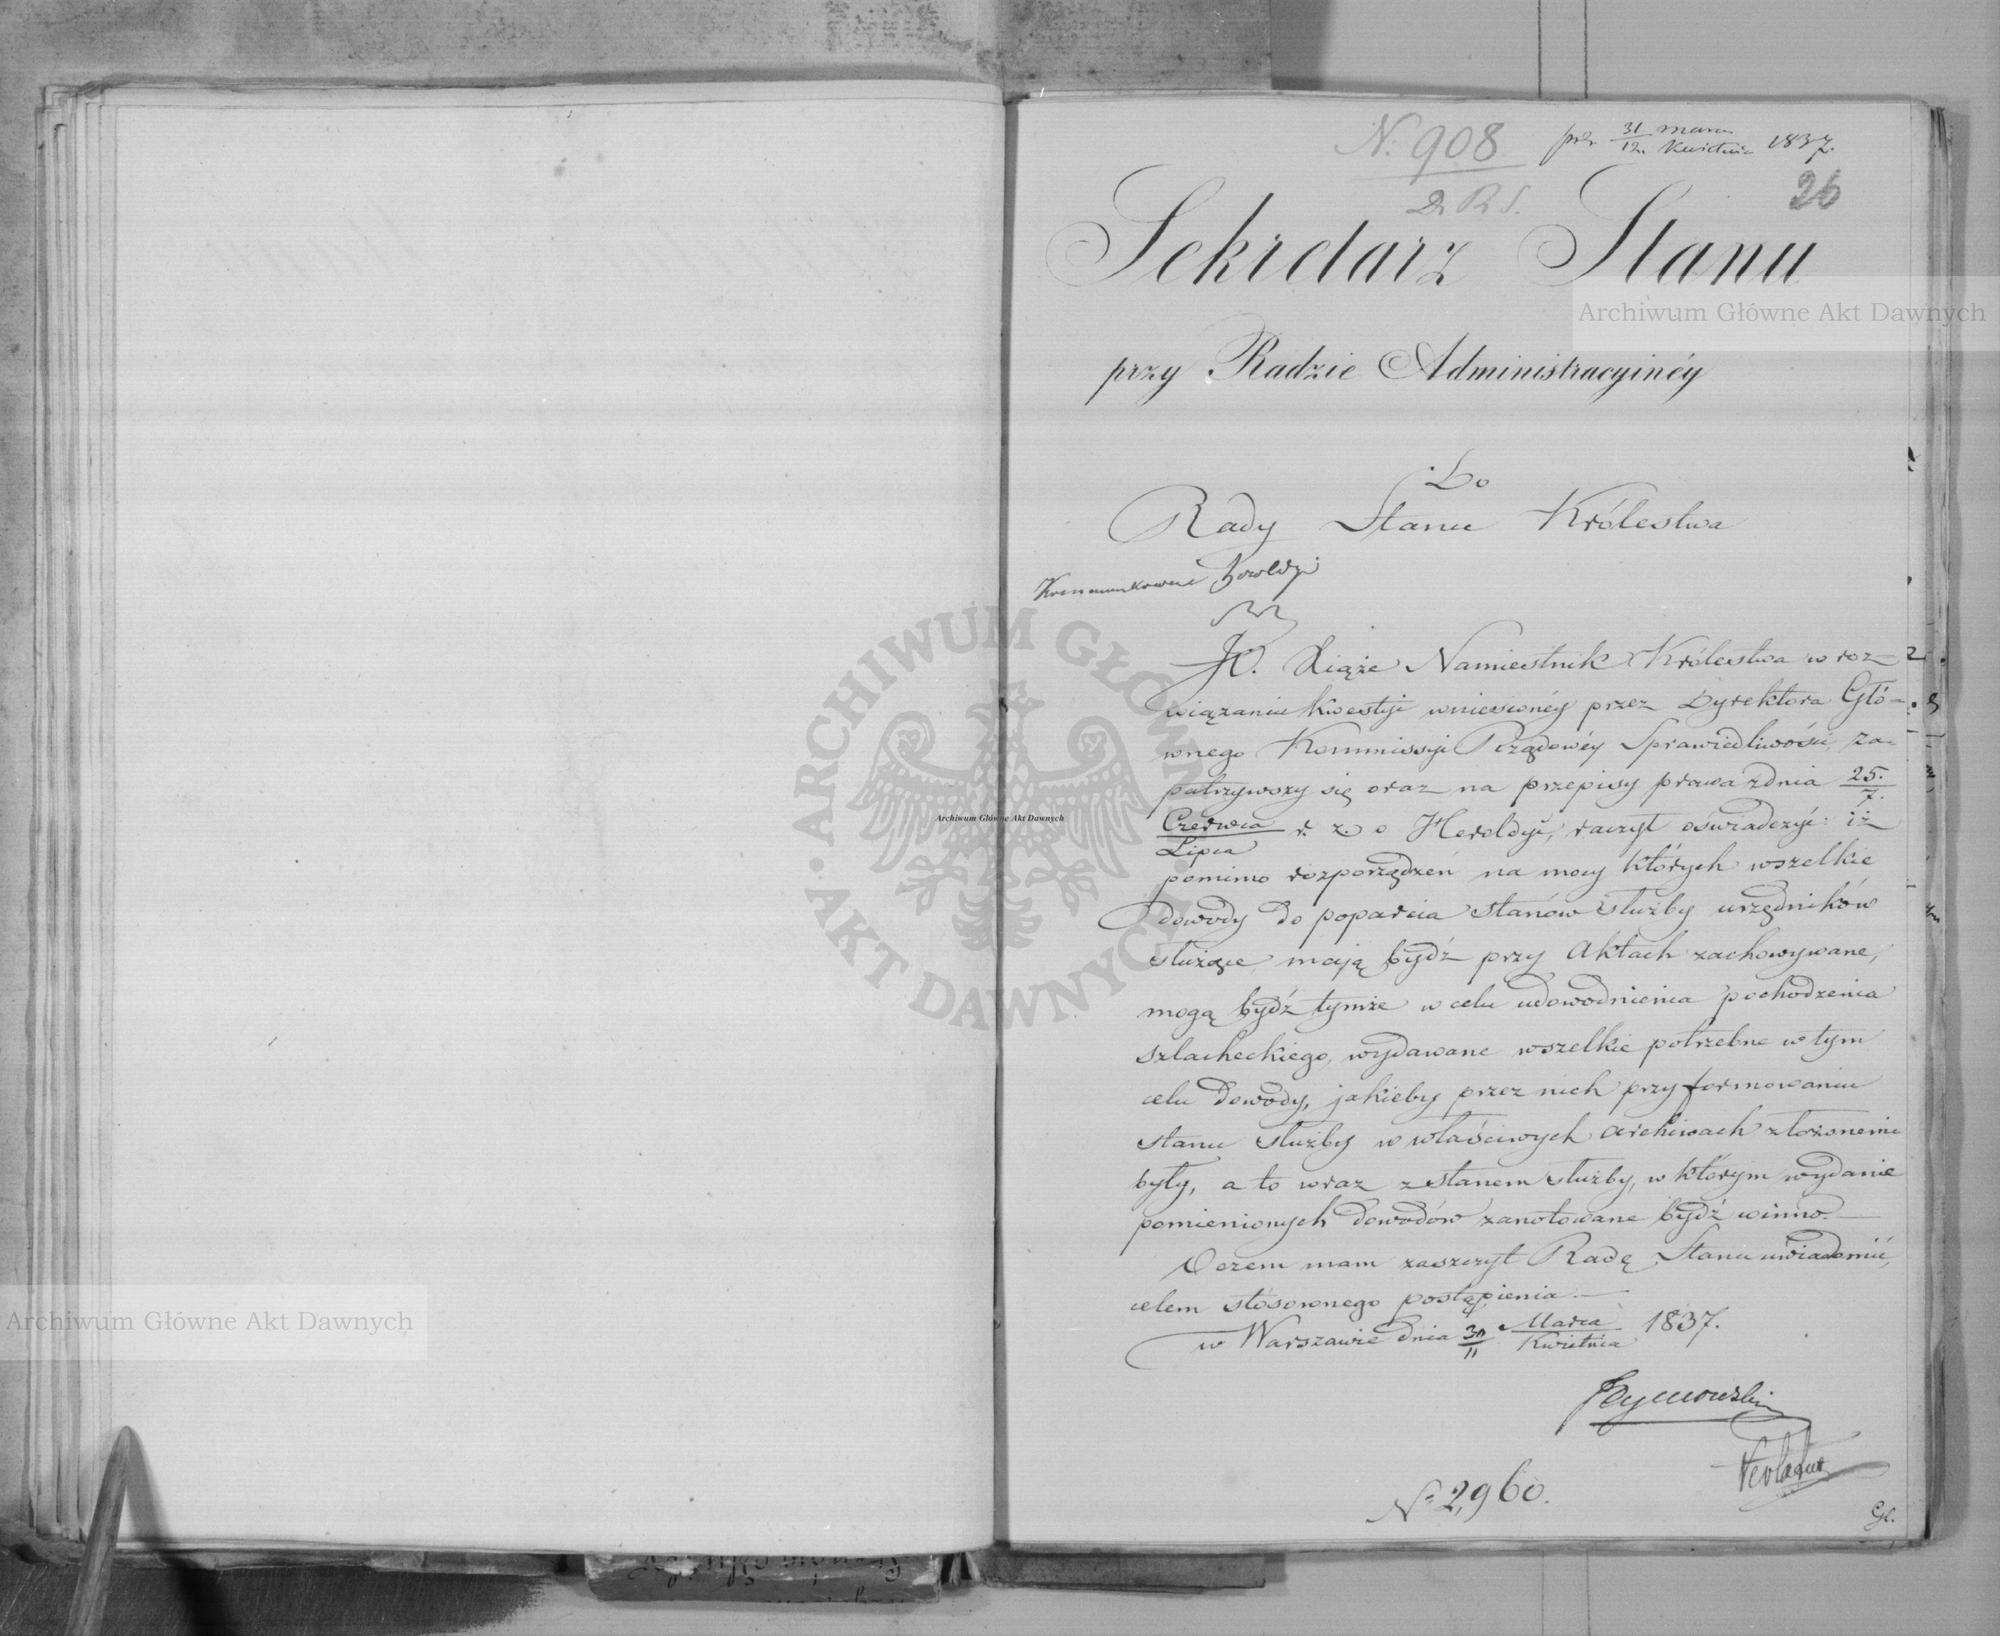 N. 908
prs 31/12. marca/Kwietnia 1837.
D. R. S.
26
Sekretarz Stanu
przy Radzie Administracyinéy
Do
Rady Stanu Królestwa
Heroldyi
JO. Xiąże Namiestnik Królestwa w roz-
wiązaniu kwestyi wniesionéy przez Dyrektora Głó-
wnego Kommissyi Rządowéy Sprawiedliwości, za-
patrzywszy się oraz na przepisy prawa z dnia 25./7.
Czerwca/Lipca r. z. o Heroldyi, raczył oświadczyć: iż
pomimo rozporządzeń na mocy których wszelkie
dowody do poparcia stanów służby urzędników
służące, mają bydź przy Aktach zachowywane,
mogą bydź tymże w celu udowodnienia pochodzenia
szlacheckiego, wydawane wszelkie potrzebne w tym
celu dowody, jakieby przez nich przy formowaniu
stanu służby w właściwych archiwach złożonemi
były, a to wraz z stanem służby, w którym wydanie
pomienionych dowodów zanotowane bydź winno.—
O czem mam zaszczyt Radę Stanu uwiadomić,
celem stosownego postąpienia.—
w Warszawie dnia 30/11 Marca/Kwietnia 1837.
Tymowski
N= 2,960.
Gl.
Archiwum Główne Akt Dawnych
Archiwum Główne Akt Dawnych
Archiwum Główne Akt Dawnych
ARCHIWUM GŁÓWNE AKT DAWNYCH